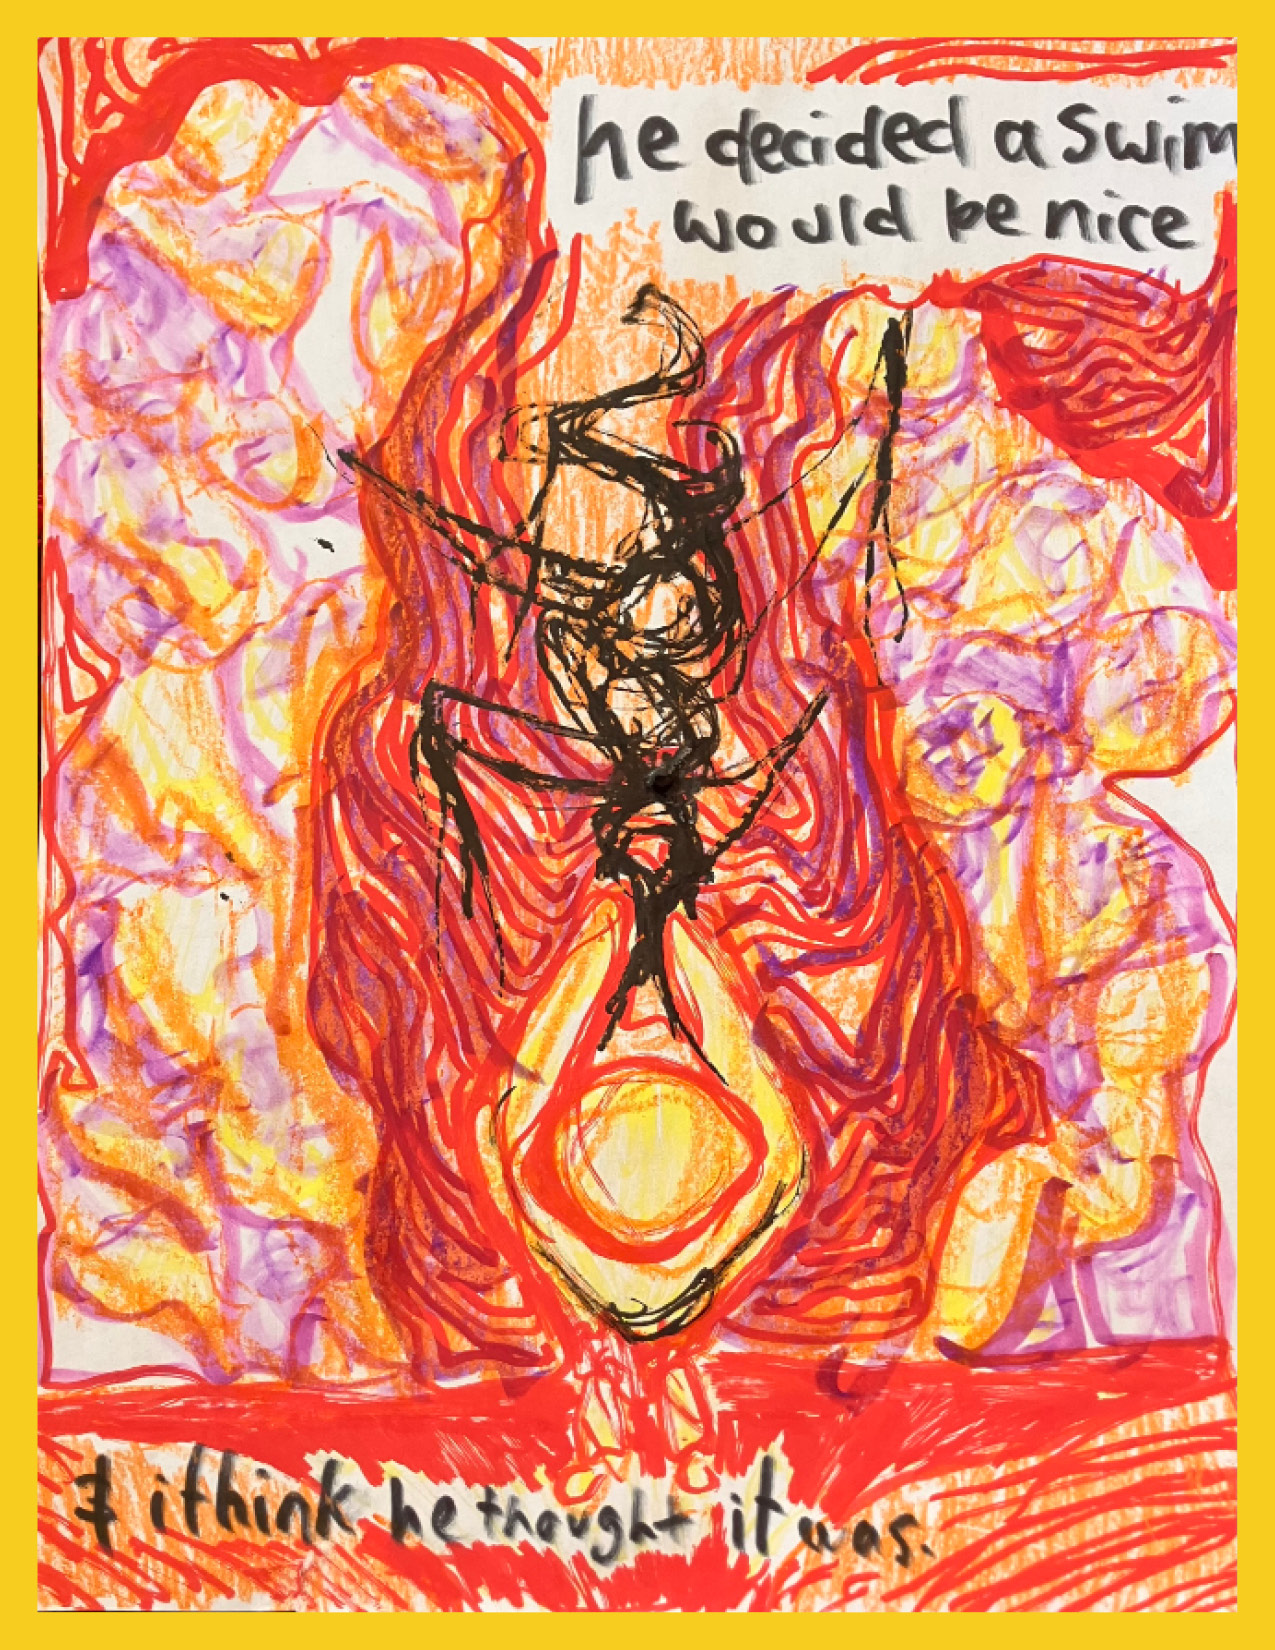 he decided a swim
would be nice
& i think he thought it was.